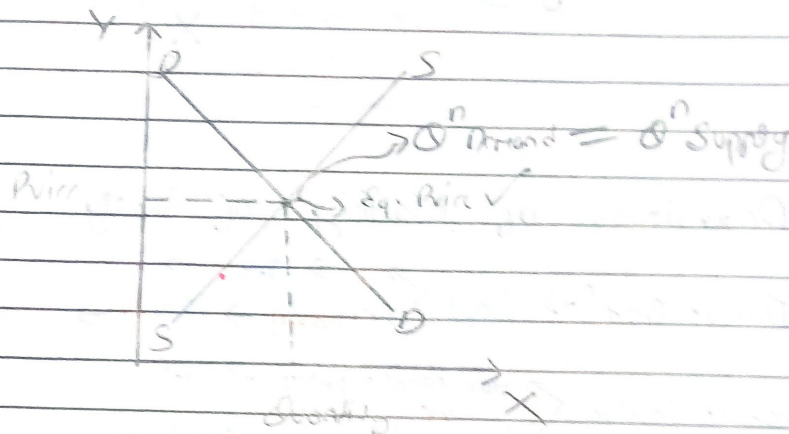 Y
D S
Qⁿ Demand = Qⁿ Supply
Price Eq. Price
S D
X
Quantity